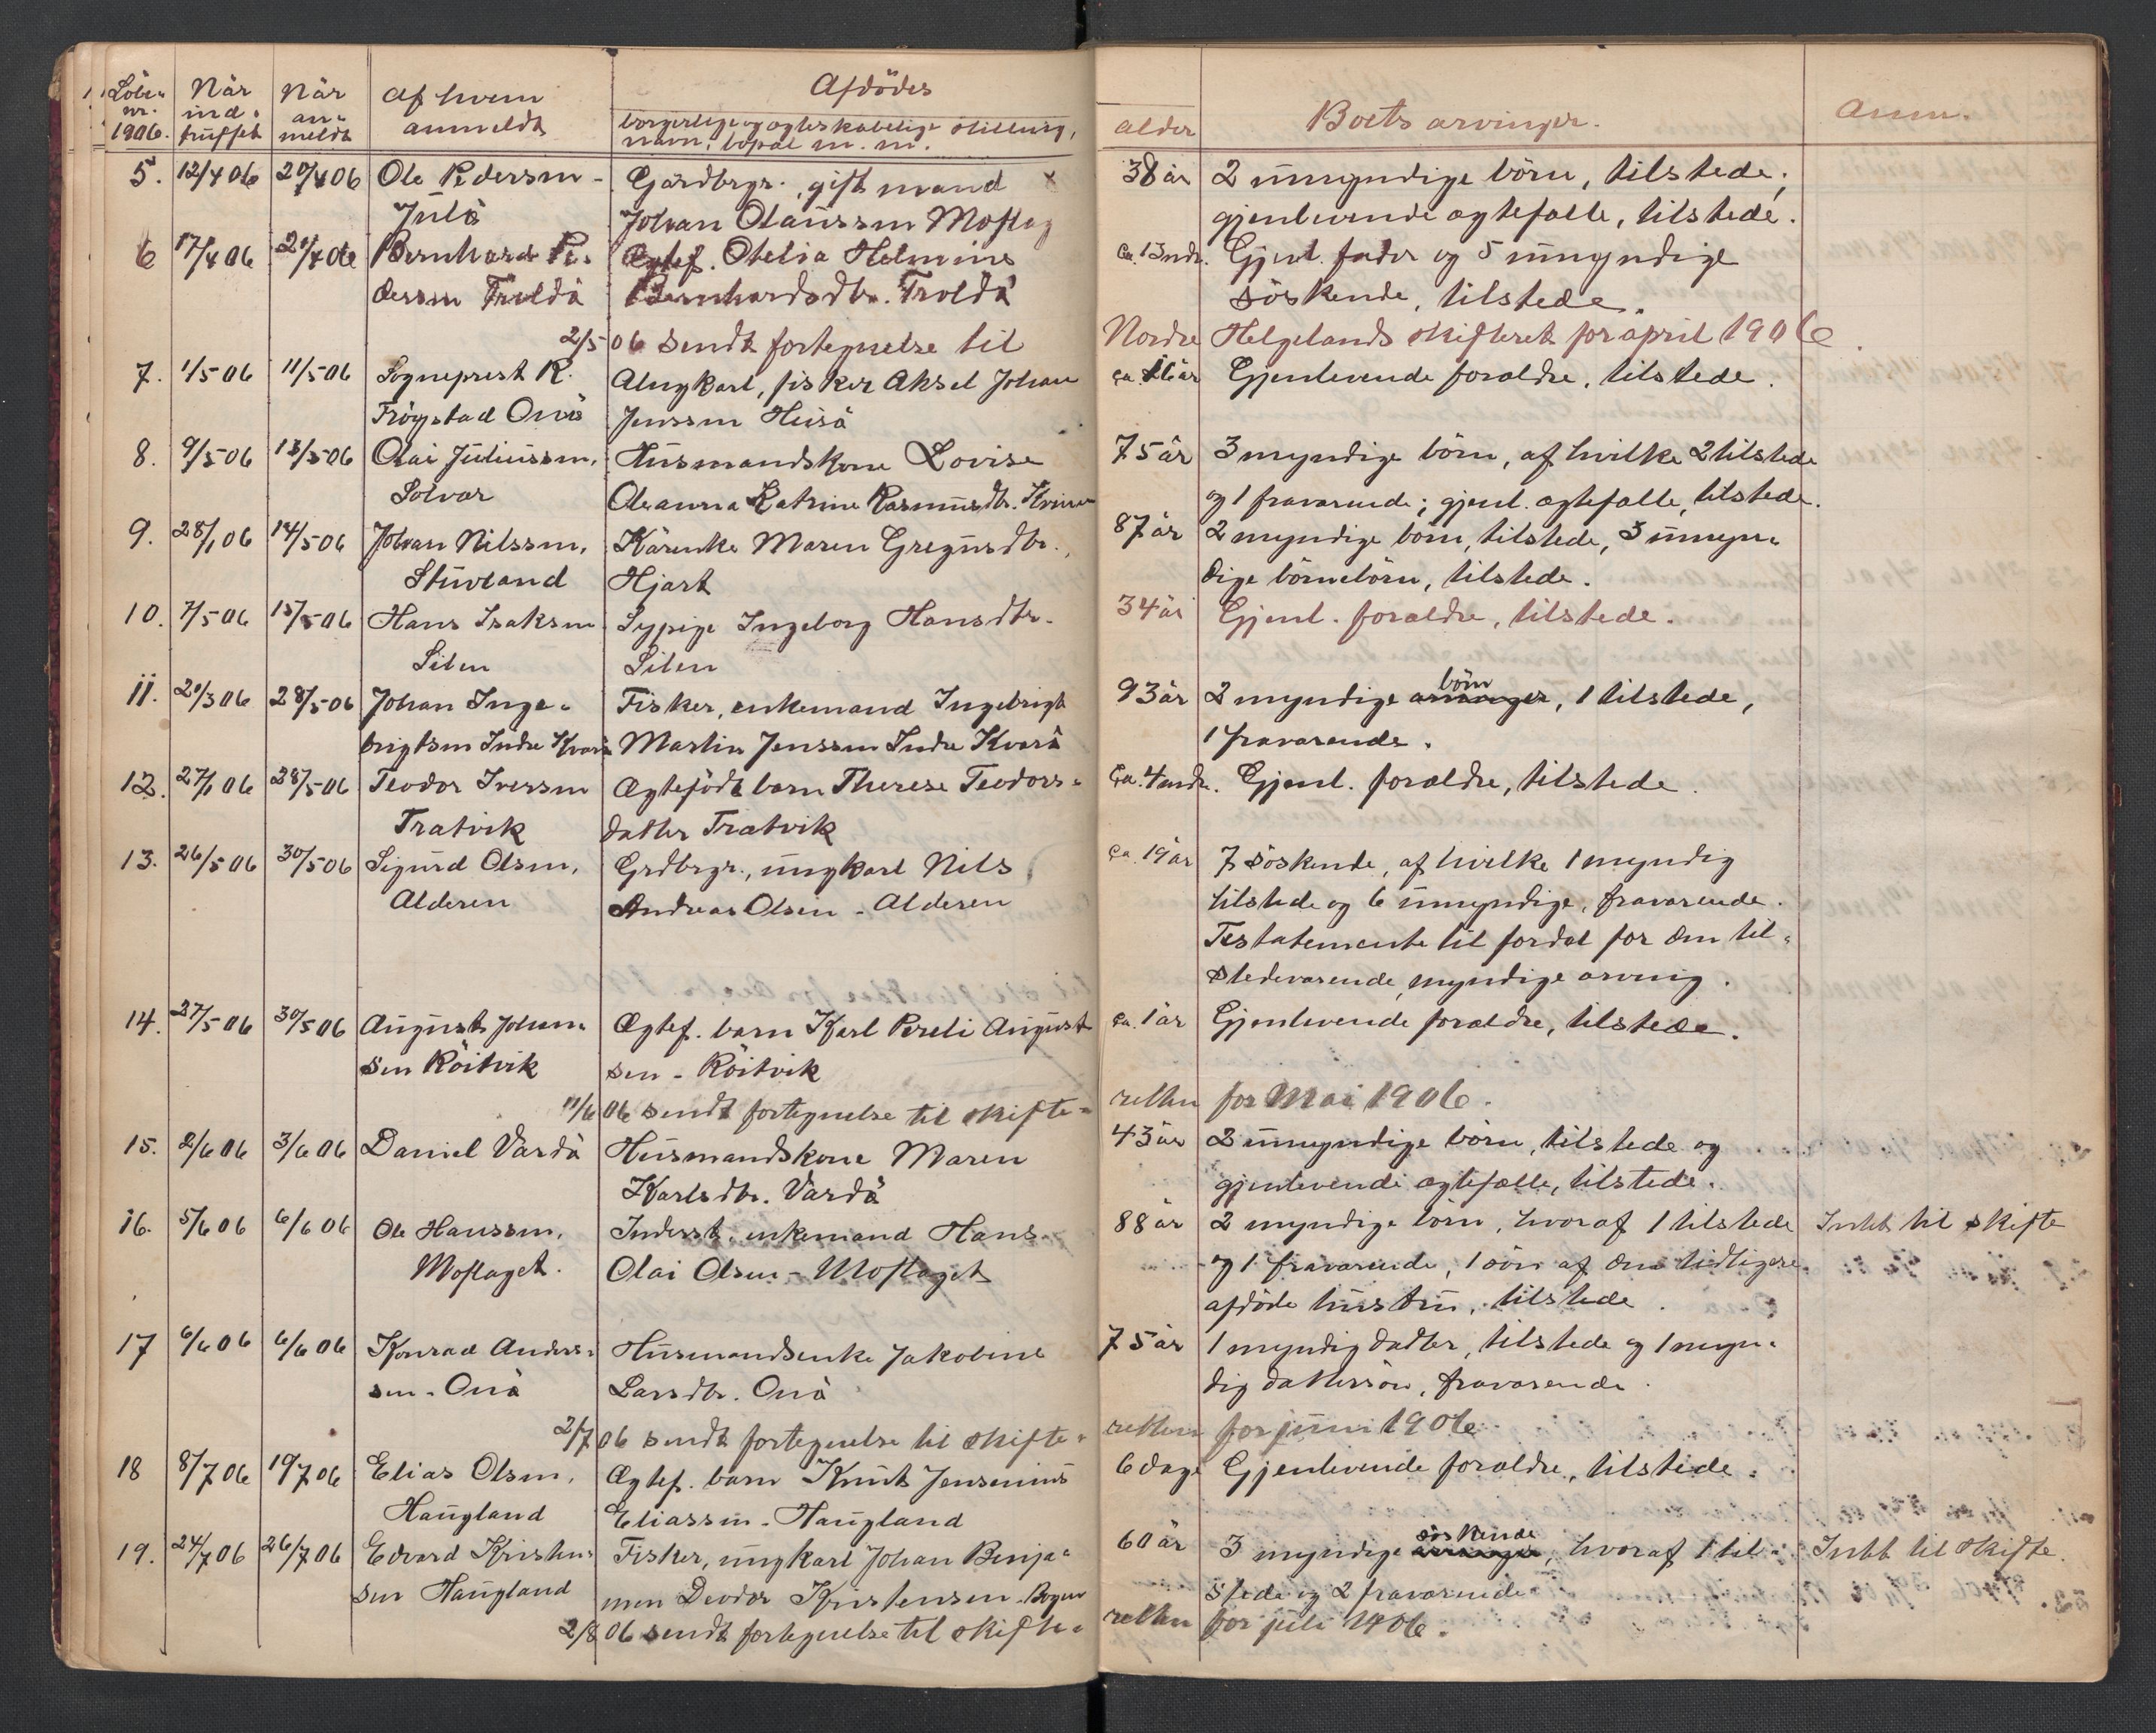 Löbe-
nr.
1906.
Når
ind-
truffet
Når
an-
meldt
Af hvem
anmeldt
Afdödes
borgerlige og ægteskabelige stilling,
navn, bopæl m. m.
alder
Boets arvinger.
Anm.
5. 12/4 06 20/4 06 Ole Pedersen - Gårdbrgr., gift mand x 38 år 2 umyndige börn, tilstede;
Julå Johan Olaussen Moflag gjenlevende ægtefælle, tilstede.
6 17/4 06 21/4 06 Bernhard Pe- Ægtef. Otelia Helmine ca. 13 mdr. Gjenl. fader og 5 umyndige
dersen Troldå Bernhardsdtr. Troldå söskende, tilstede.
2/5 06 sendt fortegnelse til Nordre Helgelands skifteret for april 1906.
7. 1/5 06 11/5 06 Sogneprest R. Ungkarl, fisker Aksel Johan ca. 16 år Gjenlevende forældre, tilstede.
Frögstad Onö Jenssen Huså
8. 9/5 06 13/5 06 Olai Juliussen, Husmandskone Lovise 75 år 3 myndige börn, af hvilke 2 tilstede
Solvær Oleanna Katrine Rasmusdtr. og 1 fraværende; gjenl. ægtefælle, tilstede.
9. 28/1 06 14/5 06 Johan Nilssen, Kårenke Maren Gregusdtr., 87 år 2 myndige börn, tilstede, 3 umyn-
Stuvland Hjart dige börnebörn, tilstede.
10. 7/5 06 15/5 06 Hans Isaksen Sypige Ingeborg Hansdtr. 34 år Gjenl. forældre, tilstede.
Silen Silen
11. 20/3 06 28/5 06 Johan Inge- Fisker, enkemand Ingebrigt 93 år 2 myndige arvinger börn, 1 tilstede,
brigtsen Indre Kvarö Martin Jenssen Indre Kvarö 1 fraværende.
12. 27/1 06 28/5 06 Teodor Iverssen Ægtefödt barn Therese Teodors- ca. 4 mdr. Gjenl. forældre, tilstede.
Trætvik datter Trætvik
13. 26/5 06 30/5 06 Sigurd Olsen, Grdbrgr., ungkarl Nils ca. 19 år 7 söskende, af hvilke 1 myndig
Alderen Andreas Olsen - Alderen tilstede og 6 umyndige, fraværende.
Testatemente til fordel for den til-
stedeværende, myndige arving.
14. 27/5 06 30/5 06 August Johan- Ægtef. barn Karl Pereli August ca. 1 år Gjenlevende forældre, tilstede.
sen Röitvik sen - Röitvik
11/6 06 sendt fortegnelse til skifte- retten for Mai 1906.
15. 2/6 06 3/6 06 Daniel Vardå Husmandskone Maren 43 år 2 umyndige börn, tilstede og
Karlsdtr. Vardå gjenlevende ægtefælle, tilstede.
16. 5/6 06 6/6 06 Ole Hanssen, Inderst, enkemand Hans 88 år 2 myndige börn, hvoraf 1 tilstede Indb til skifte
Moflaget. Olai Olsen - Moflaget og 1 fraværende, 1 sön af den tidligere
afdöde hustru, tilstede.
17 6/6 06 6/6 06 Konrad Anders- Husmandsenke Jakobine 75 år 1 myndig datter, tilstede og 1 myn-
sen - Onö Larsdtr. Onö dig dattersön, fraværende.
2/7 06 sendt fortegnelse til skifte- retten for juni 1906.
18 8/7 06 19/7 06 Elias Olsen, Ægtef. barn Knut Jensenius 6 dage Gjenlevende forældre, tilstede.
Haugland Eliassen - Haugland
19. 24/7 06 26/7 06 Edvard Kristen- Fisker, ungkarl Johan Benja- 60 år 3 myndige arvinger söskende, hvoraf 1 til- Indb til skifte.
sen Haugland men Deodor Kristensen - Bogen stede og 2 fraværende
2/8 06 sendt fortegnelse til skifte- retten for juli 1906.